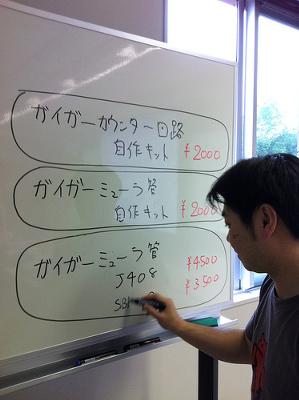 ガイガーカウンター回路
自作キット ¥2000
ガイガーミューラ管
自作キット ¥2000
ガイガーミューラ管
J408 ¥4500
¥3500